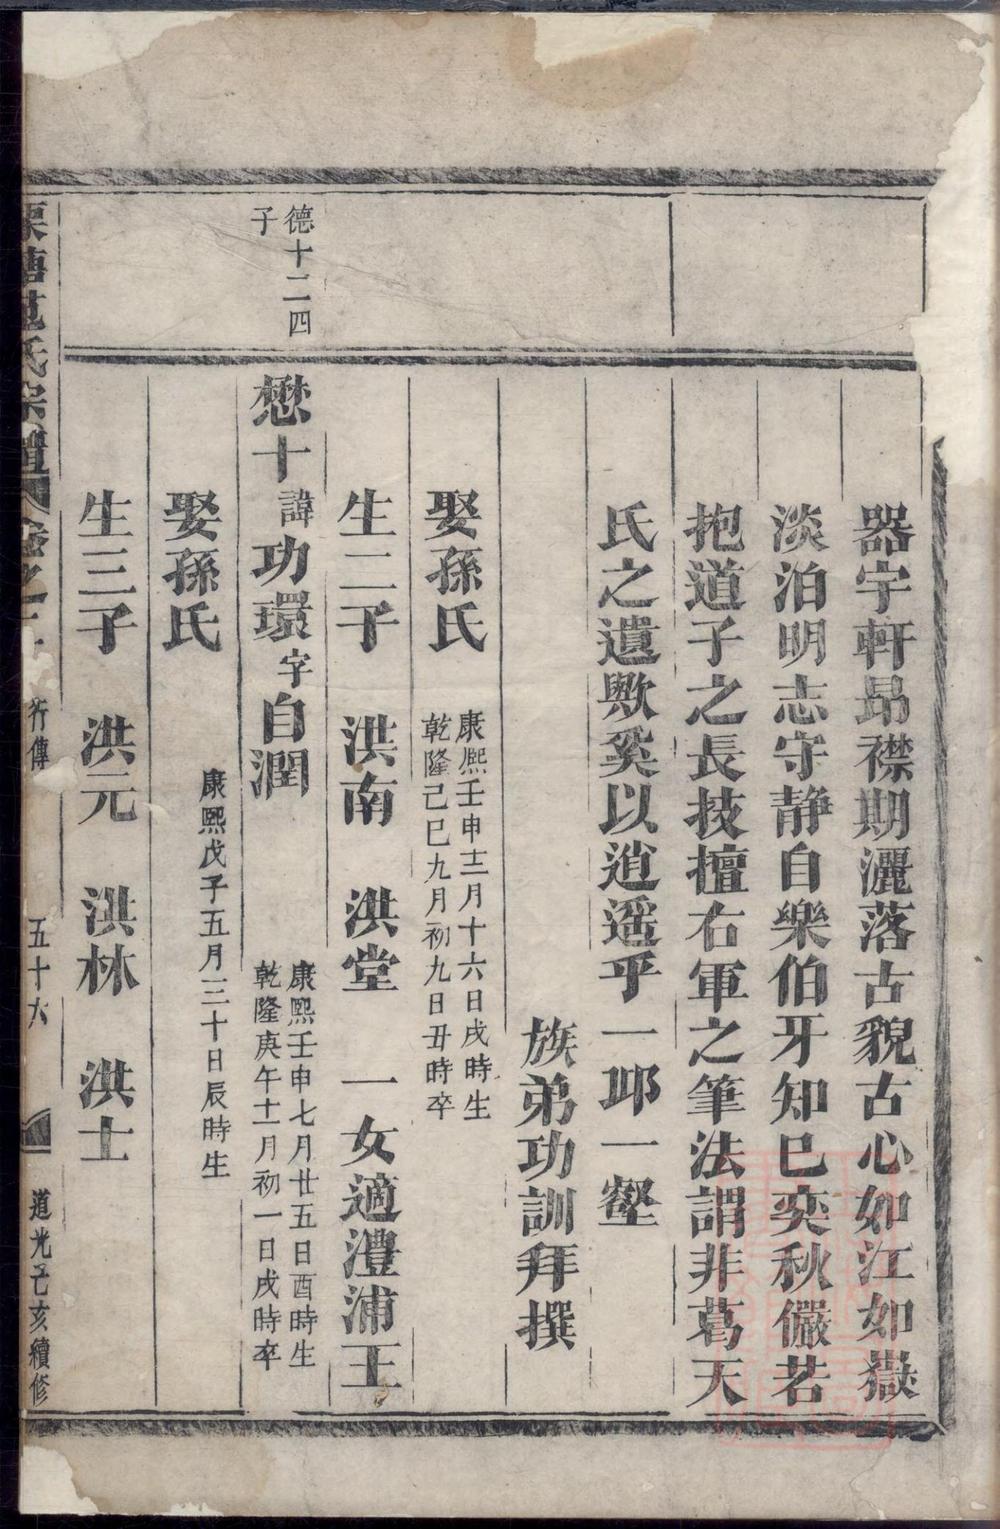 器宇軒昻襟期灑落古貌古心如江如嶽
淡泊明志守静自樂伯牙知已奕秋儼若
抱道子之長技擅右軍之筆法謂非葛天
氏之遺歟奚以逍遥乎一邱一壑
族弟功訓拜撰
娶孫氏
康熈壬申十二月十六日戌時生
乾隆己巳九月初九日丑時卒
生二子 洪南 洪堂 一女適澧浦王
德十二四
子
懋十諱功環字自潤
康熙壬申七月廿五日酉時生
乾隆庚午十一月初一日戌時卒
娶孫氏
康熙戊子五月三十日辰時生
生三子 洪元 洪林 洪士
范氏宗譜 卷之 行傳 五十六 道光己亥續修